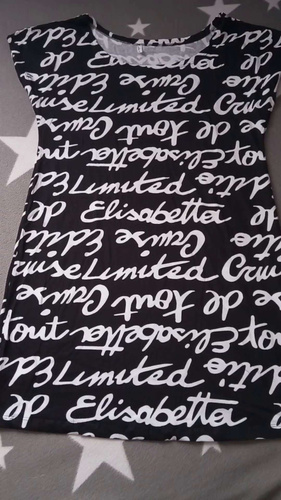 Edit
de Elisabetta
Cruise Limited Cruise
de tout Cruise Edit
tout Elisabetta
Ed Limited
de Elisabetta
Cruise Edit
Cruise Limited Crui
de tout Cruise
tout Elisabetta
Ed Limited
de Elisabetta